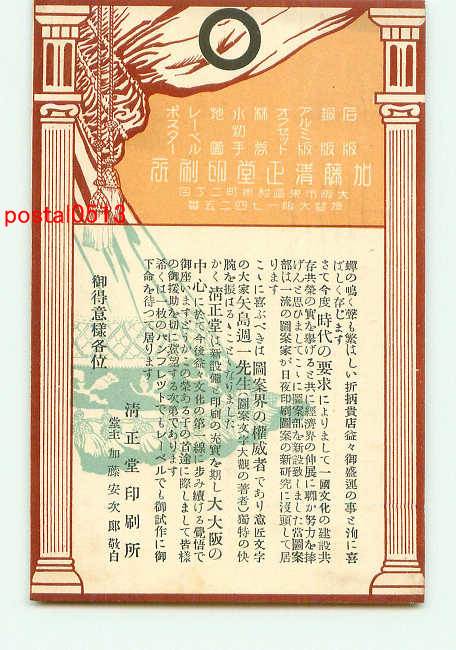 石版
銅版
アルミ版
オフセット
株券
水切手
地圖
レーベル
ポスター
加藤淸正堂印刷所
振替大阪一七四二五番
postal0513
蟬の鳴く聲も繁はしい折柄貴店益々御盛運の事と洵に喜
ばしく存じます
さて今度 時代の要求によりまして一國文化の建設共
存共榮の實を擧げると共に經濟界の伸展に聊か努力を捧
げんと思ひましてこゝに圖案部を新設致しました當圖案
部は一流の圖案家が日夜印刷圖案の新研究に沒頭して居
ります
こゝに喜ぶべきは圖案界の權威者であり意匠文字
の大家矢島週一先生(圖案文字大觀の著者)獨特の快
腕を振はるゝこととなりました
かく淸正堂は新設備と印刷の充實を期し大大阪の
中心に於て今後益々文化の第一線に步み續ける覺悟で
御座いますどうかこの榮ある子の首途に際しまして皆樣
の御援助を切に冀望する次第であります
希くは一枚のパンフレツトでもレーベルでも御試作に御
下命を待つて居ります
淸正堂印刷所
堂主 加藤安次郎 敬白
御得意樣各位